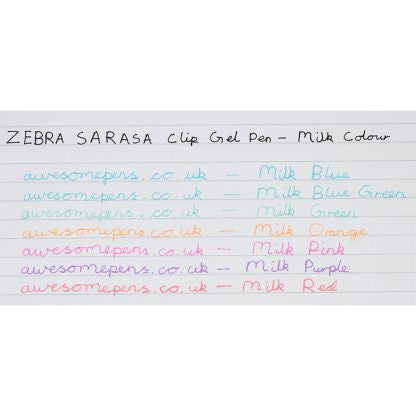 ZEBRA SARASA Clip Gel Pen - Milk Colour
awesomepens.co.uk - Milk Blue
awesomepens.co.uk - Milk Blue Green
awesomepens.co.uk - Milk Green
awesomepens.co.uk - Milk Orange
awesomepens.co.uk - Milk Pink
awesomepens.co.uk - Milk Purple
awesomepens.co.uk - Milk Red